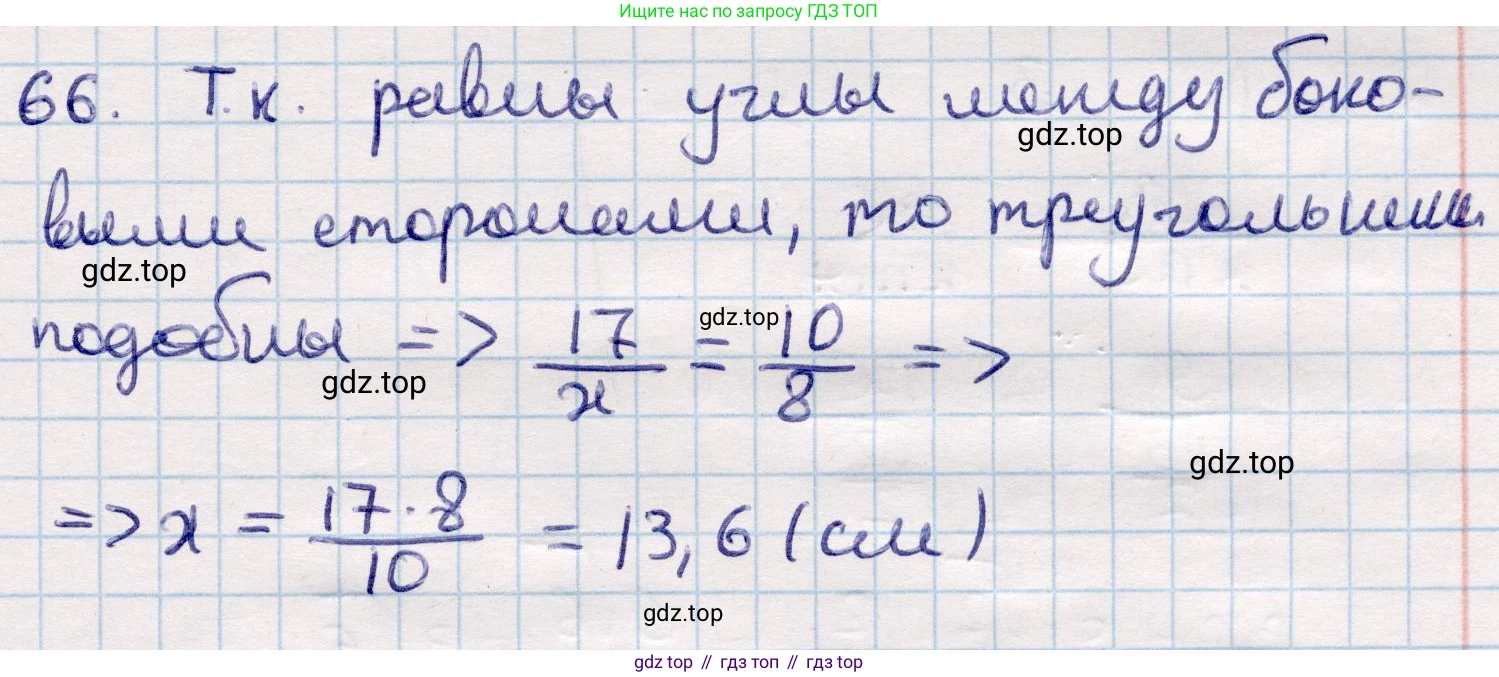 Ищите нас по запросу ГДЗ ТОП
66. Т.к. равны углы между боко-
gdz.top
выми сторонами, то треугольники
gdz.top
подобны => 17/x = 10/8 =>
gdz.top
gdz.top
gdz.top
=> x = 17·8/10 = 13,6 (см)
gdz.top
gdz top // гдз топ // гдз top